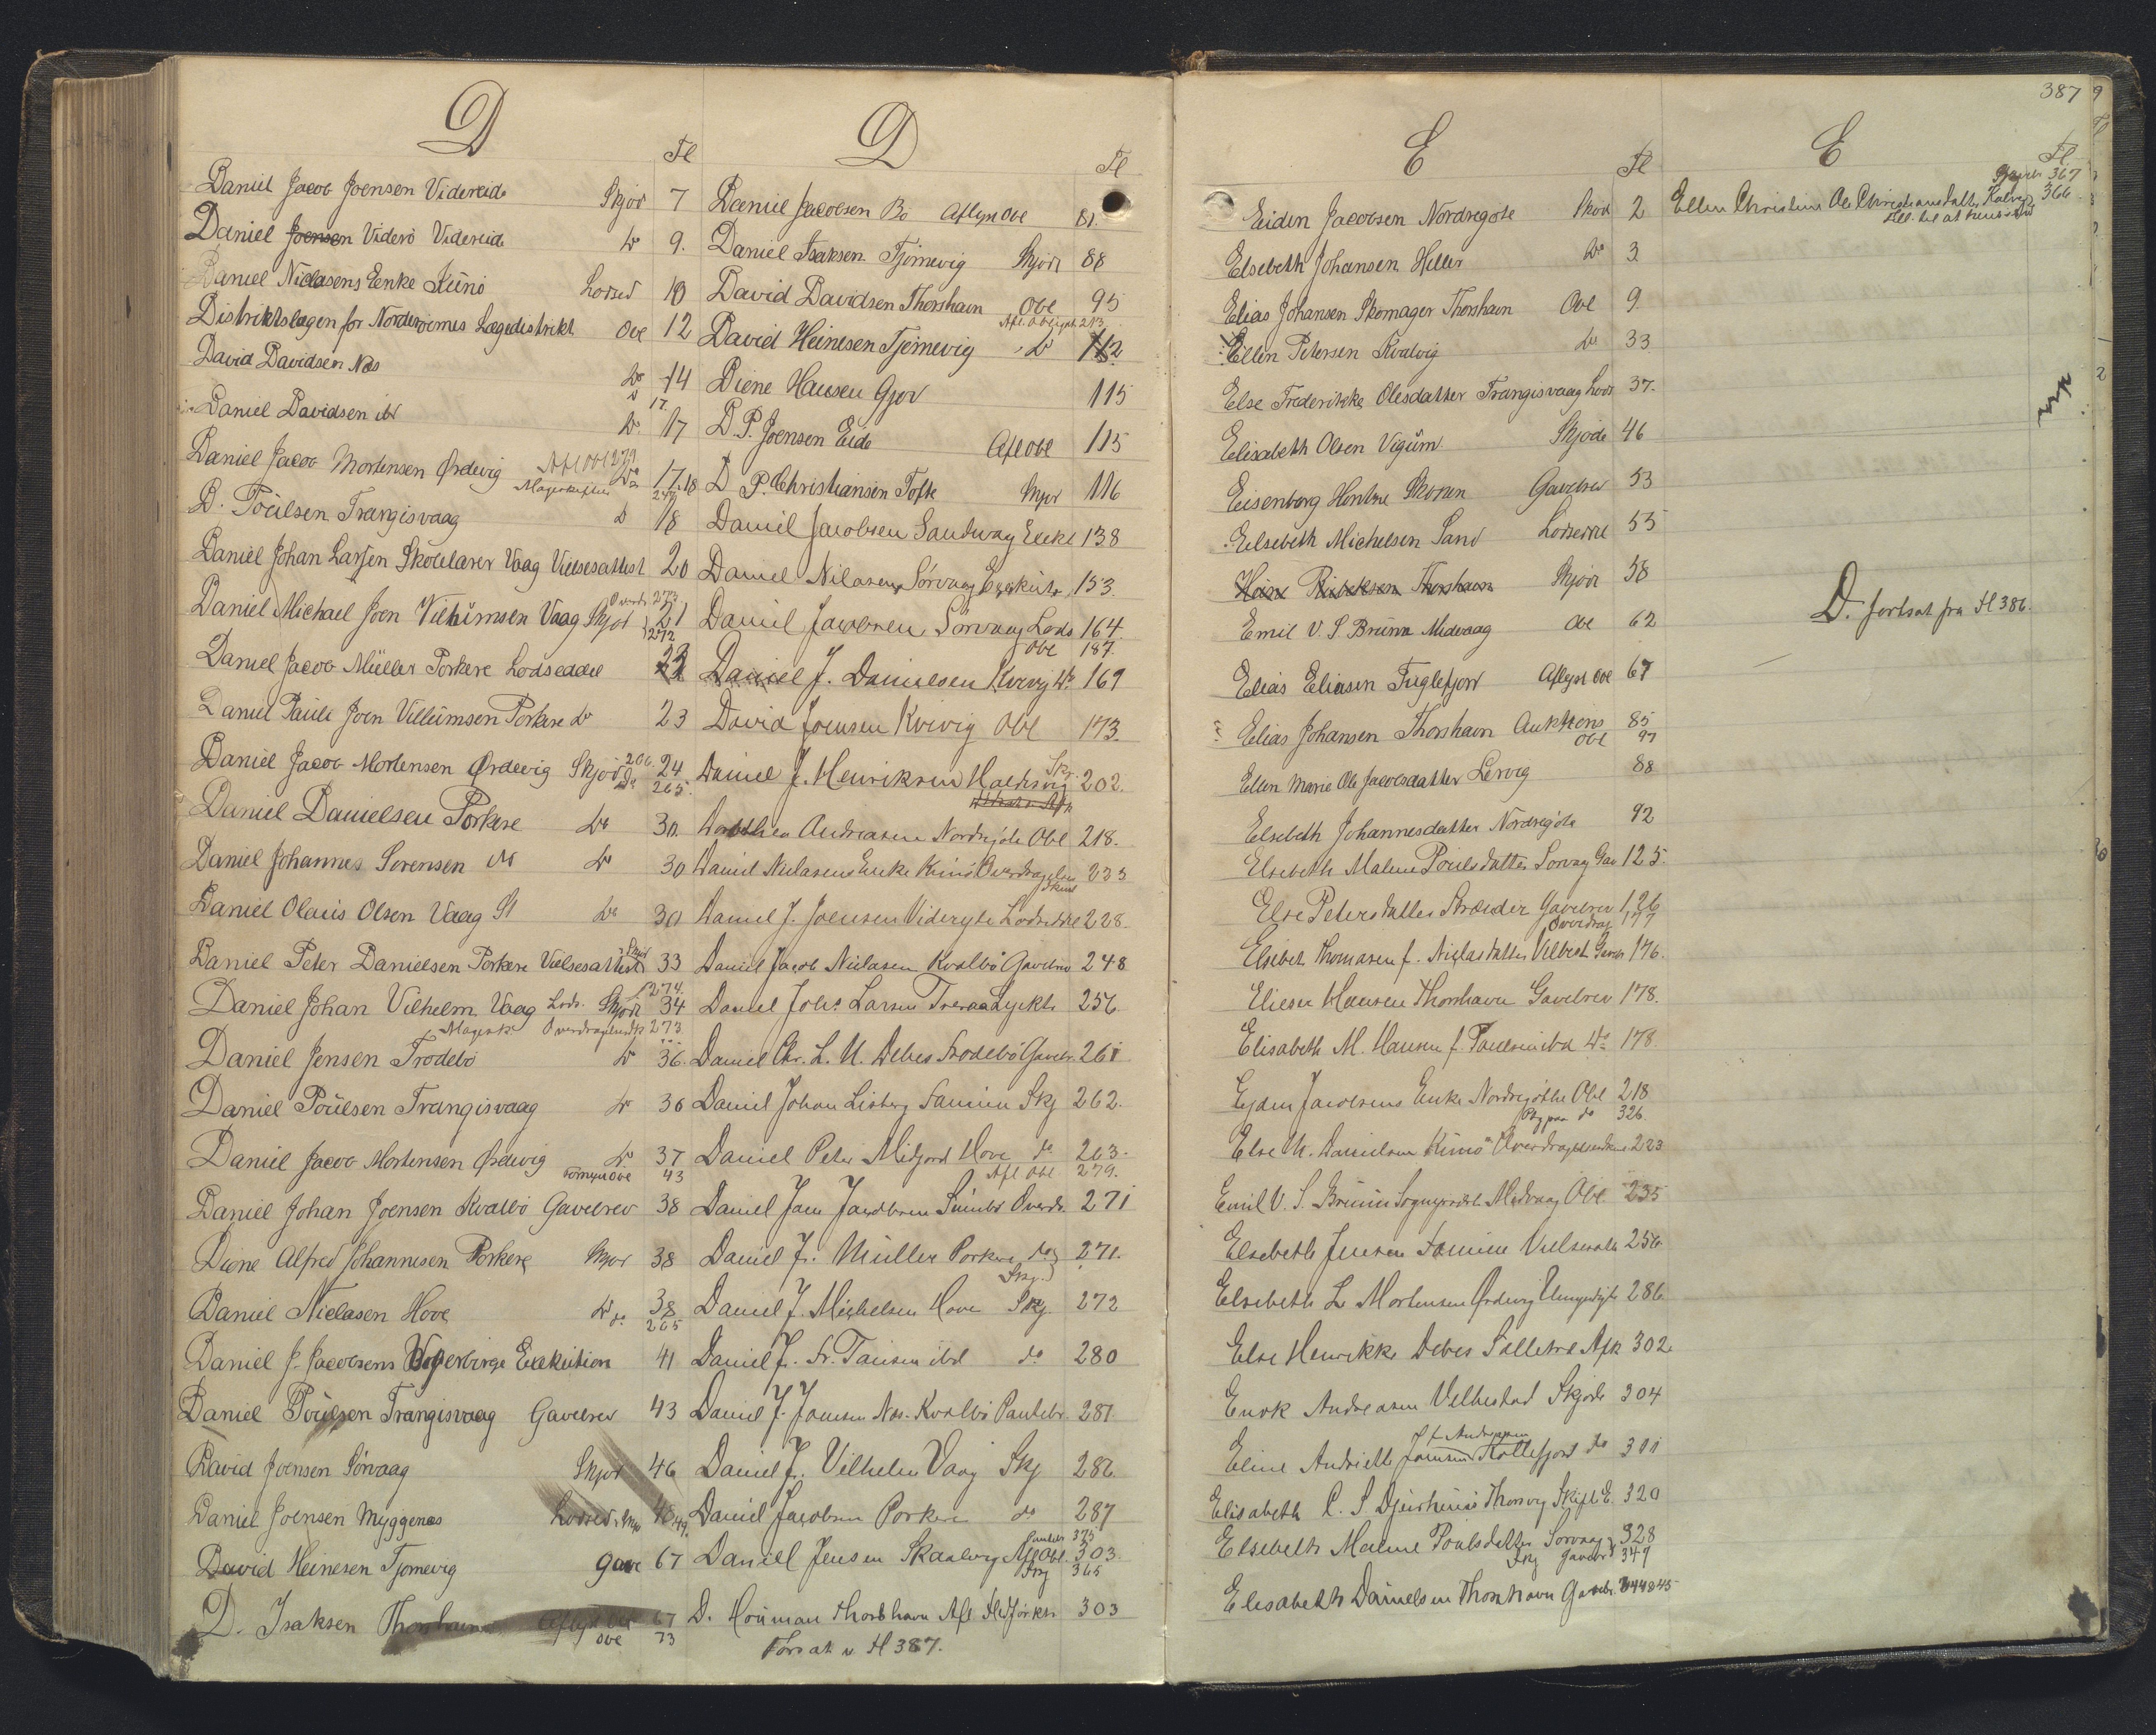 D
Fl
Daniel Jacob Joensen Videreide Skjød 7
Daniel Joensen Viderø Videreide Do 9.
Daniel Niclasens Enke Kunø Lodsed 10
Distriktslægen for Norderøernes Lægedistrikt Obl 12
David Davidsen Næs Do 14
D 17
Daniel Davidsen ibd Do 17
Afl Obl 279
Daniel Jacob Mortensen Ørdevig Do 17.18
Mageskifte 247
D. Poulsen Trangisvaag D 18
Daniel Johan Larsen Skolelærer Vaag Vielsesattest 20
Overdr 273
Daniel Michael Joen Villumsen Vaag Skjød 21
272
Daniel Jacob Müller Porkere Lodseddel 22
Daniel Pauli Joen Villumsen Porkere Do 23
206.
Daniel Jacob Mortensen Ørdevig Skjød 24
Do 265.
Daniel Danielsen Porkere Do 30.
Daniel Johannes Sørensen Do 30
Daniel Olaus Olsen Vaag Do 30
Skjød
Daniel Peter Danielsen Porkere Vielsesattest 33
274.
Daniel Johan Vilhelm Vaag Lods. Skjød 34
Magesk. Overdragelsesdk 273
Daniel Jensen Frodebø Do 36.
Daniel Poulsen Trangisvaag Do 36
Daniel Jacob Mortensen Ørdevig Do 37
Obl 43
Daniel Johan Joensen Kvalbø Gavebrev 38
Dione Alfred Johannesen Porkere Skjød 38
Daniel Niclasen Hove Do 38
do 265
Daniel J. Jacobsens Exekution 41
Daniel Poulsen Trangisvaag Gavebrev 43
David Joensen Sørvaag Skjød 46
Daniel Joensen Myggenæs Lodsed. Skjø 48,49.
David Heinesen Tjørnevig Gave 67
D. Isaksen Thorshavn Aflyst Obl 67
Obl 73
D
Fl
Daniel Jacobsen Bø Aflyst Obl 81.
Daniel Isaksen Tjørnevig Skjød 88
David Davidsen Thorshavn Obl 95
Afl. Obligat. 213
David Heinesen Tjørnevig Do 112
Diene Hansen Gjov 115
D. P. Joensen Eide Afl Obl 115
D P. Christiansen Tofte Skjød 116
Daniel Jacobsen Sandvaag Exek 138
Daniel Nilasens Sørvaag Exekut. 153.
Daniel Jacobsen Sørvaag Lods 164.
Obl 187.
Daniel J. Danielsen Kvivig Do 169
David Joensen Kvivig Obl 173.
Daniel J. Henriksen Haldsvig Skj. 202.
Dorthea Andreasen Nordregöte Obl 218.
Daniel Niclasens Enke Kunö Overdragelses 223
skjød
Daniel J. Joensen Videreide Lodseddel 228.
Daniel Jacob Niclasen Kvalbø Gavebrev 248
Daniel Johs. Larsen Tveraa Lysekr. 256.
Daniel Chr. L. U. Debes Frodebø Gavebr. 261
Daniel Johan Lisberg Famien Skj 262.
Daniel Peter Midjord Hove do 263.
Afl Obl 279.
Daniel Joen Jacobsen Sumbø Overdr. 271
Daniel J. Müller Porkere do 271.
Skj.
Daniel J. Michelsen Hove Skj. 272
Daniel J. Fr. Tausen ibd do 280
Daniel J. Joensen Næs. Kvalbø Pantebr. 281
Daniel J. Vilhelm Vaag Skj 286.
Daniel Jacobsen Porkere do 287
Pantebr 375
Daniel Jensen Skaalevig Afl Obl. 303.
Skj 365
D. Houman Thorshavn Afl 303
Forsat v. Fl 387.
387
E
Fl
Eiden Jacobsen Nordregøte Skød 2
Elsebeth Johansen Heller Do 3
Elias Johansen Skomager Thorshavn Obl 9.
Ellen Petersen Kvalvig Do 33
Else Frederikke Olesdatter Trangisvaag Lods 37.
Elisabeth Olsen Vigum Skjøde 46
Eisenberg Hentze Skoren Gavebrev 53
Elsebeth Michelsen Sand Lodseddel 55
Thorshavn Skjød 58
Emil V. S. Bruun Midvaag Obl 62
Elias Eliasen Fuglefjord Aflyst Obl 67
Elias Johansen Thorshavn Auktions 85
Obl 97
Ellen Marie Ole Jacobsdatter Lervig 88
Elsebeth Johannesdatter Nordregöte 92
Elsebeth Malene Poulsdatter Sorvaag Gav 125.
Else Petersdatter Gavebrev 126
Overdrag 177
Elsebet Thomasen f. Niclasdatter Velbest Gaveb 176.
Elieser Hansen Thorshavn Gavebrev 178.
Elisabeth M. Hansen f. Poulsen ibd Do 178.
Ejden Jacobsens Enke Nordregöthe Obl 218
do 326
Else M. Danielsen Kunø Overdragelsesdkm 223
Emil V. S. Bruun Sognepræst Midvaag Obl. 235
Elsebeth Jensen Famien Vielsesatt. 256
Elsebeth L Mortensen Ørdevig 286
Else Henrikke Debes Selletræ Afk 302.
Enok Andreasen Velbestad Skjøde 304
f. Andreasen
Eline Andrietta Joensen Kollefjord do 311
Elisabeth C. S Djurhuus Thorsvig Skifte E. 320
Elsebeth Malene Poulsdatter Sorvaag 328
Skj Gavebr 349
Elisabeth Danielsen Thorshavn Gavebr. 344 & 45
E
Fl
Gavebr. 367
Ellen Christine Ole Christiansdatter Kalvø 366
D. fortsat fra Fl 386.